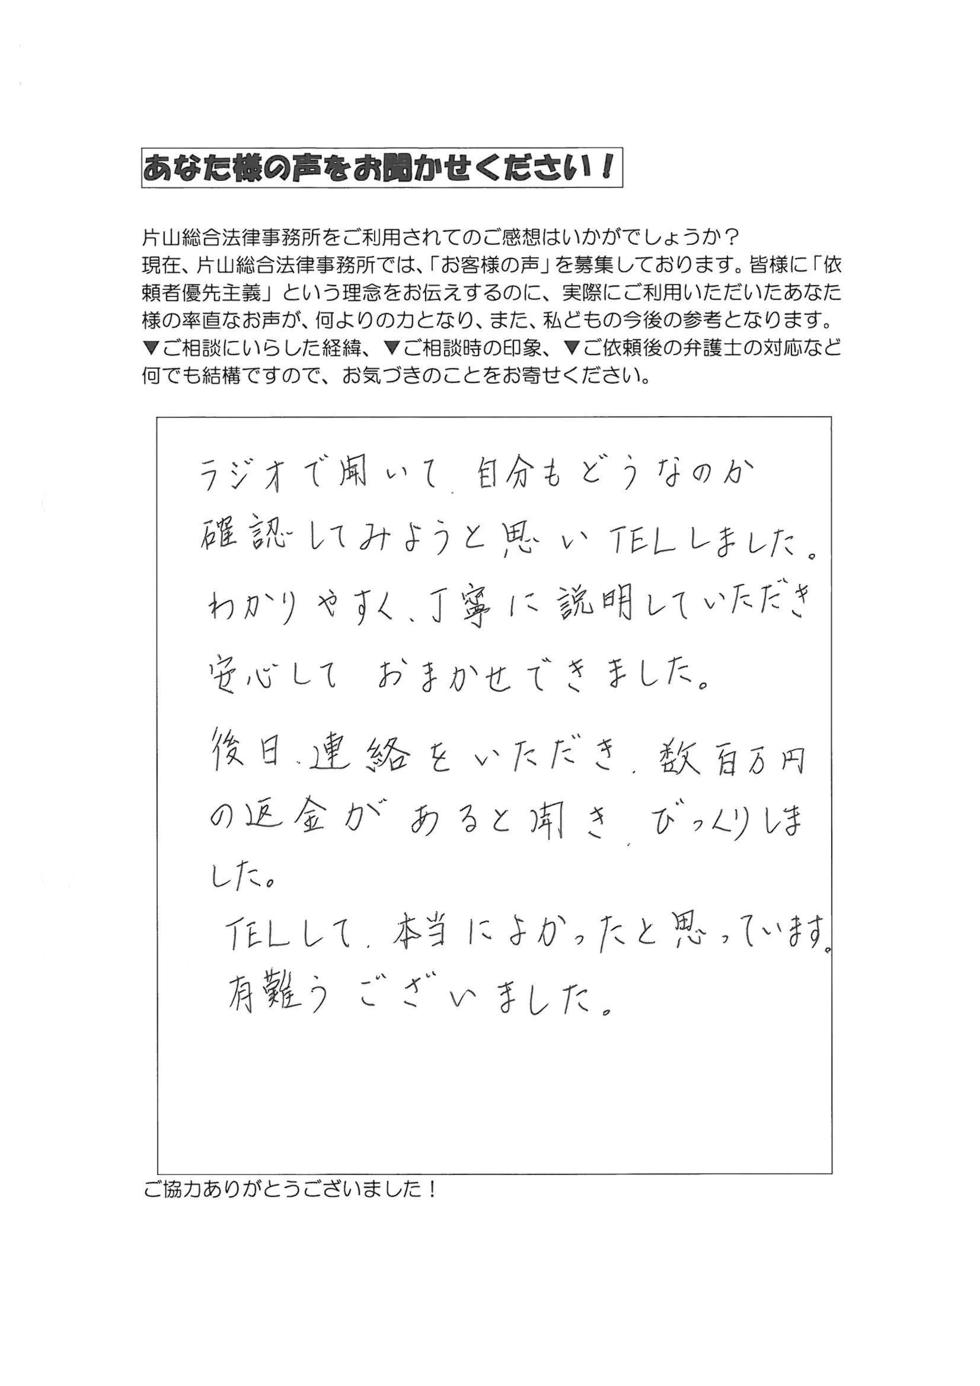 あなた様の声をお聞かせください！
片山総合法律事務所をご利用されてのご感想はいかがでしょうか？
現在、片山総合法律事務所では、「お客様の声」を募集しております。皆様に「依
頼者優先主義」という理念をお伝えするのに、実際にご利用いただいたあなた
様の率直なお声が、何よりの力となり、また、私どもの今後の参考となります。
▼ご相談にいらした経緯、▼ご相談時の印象、▼ご依頼後の弁護士の対応など
何でも結構ですので、お気づきのことをお寄せください。
ラジオで聞いて、自分もどうなのか
確認してみようと思い TELしました。
わかりやすく、丁寧に説明していただき
安心して おまかせできました。
後日、連絡をいただき、数百万円
の返金があると聞き、びっくりしま
した。
TELして、本当によかったと思っています。
有難うございました。
ご協力ありがとうございました！